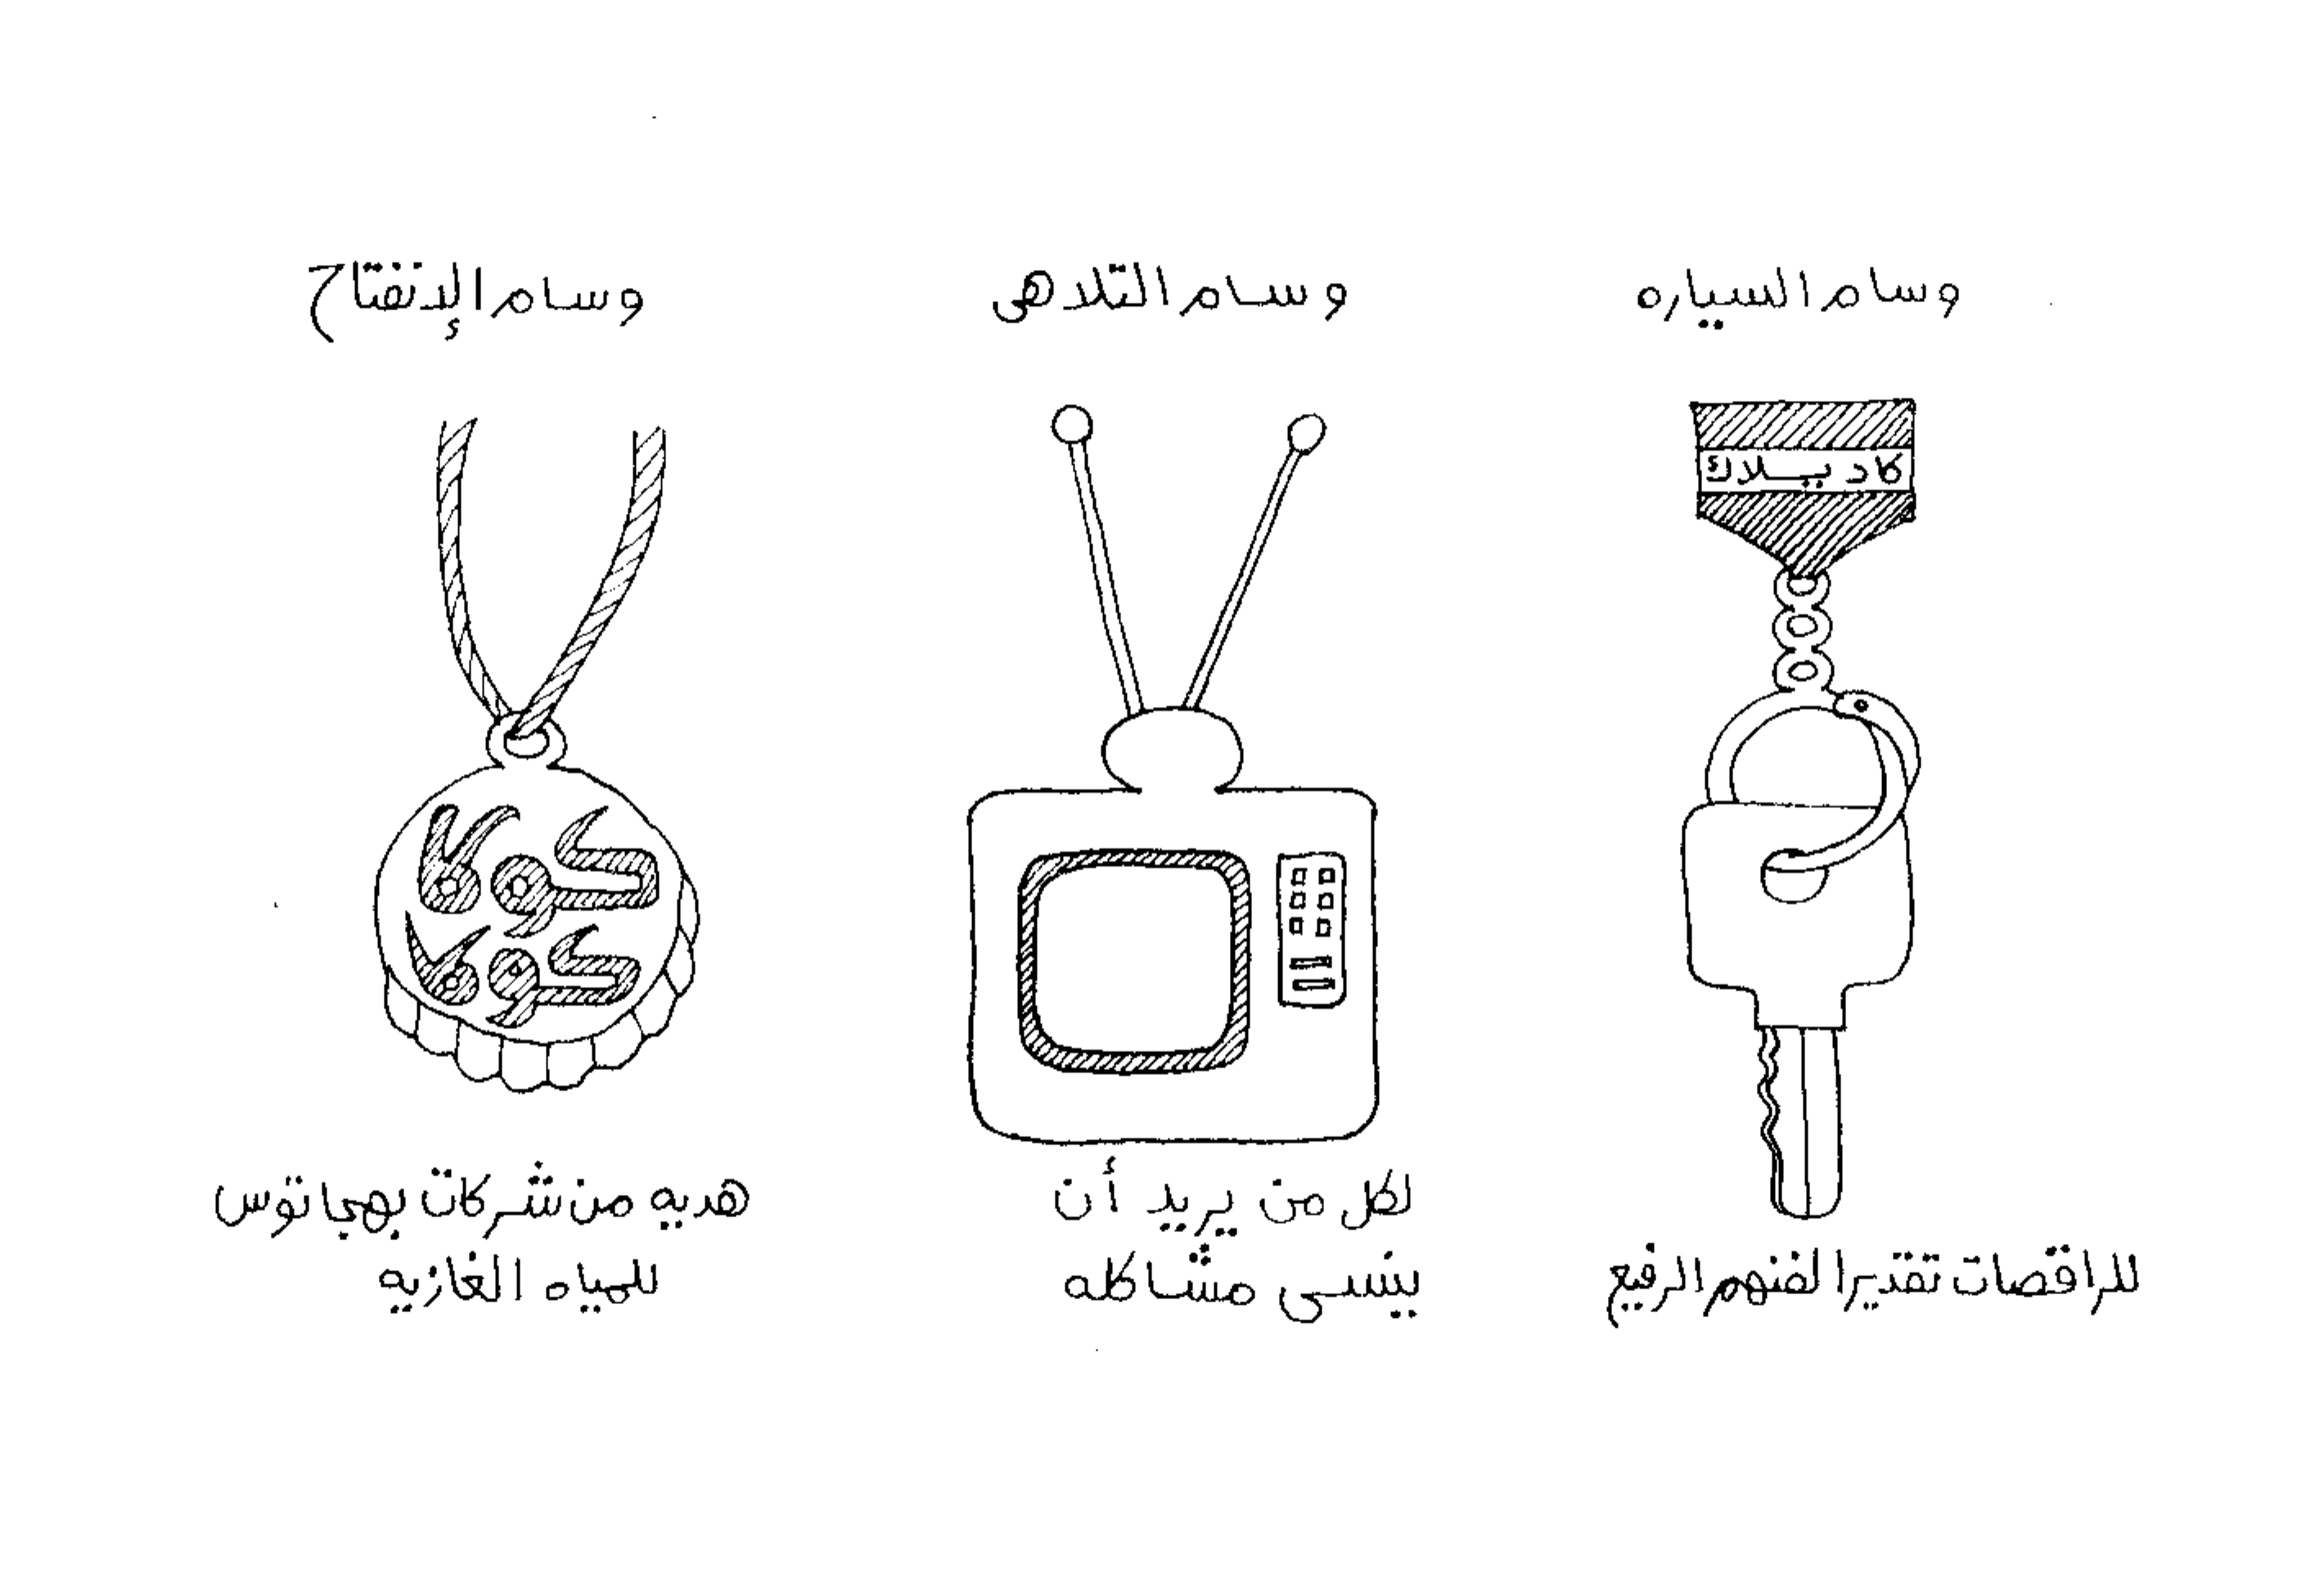 وسام السياره
كاديلاك
للراقصات تقديرا لفنهم الرفيع
وسام التلاهى
لكل من يريد أن
ينسى مشاكله
وسام الإنفتاح
كوكا
كوكا
هديه من شركات بهجاتوس
للمياه الغازيه